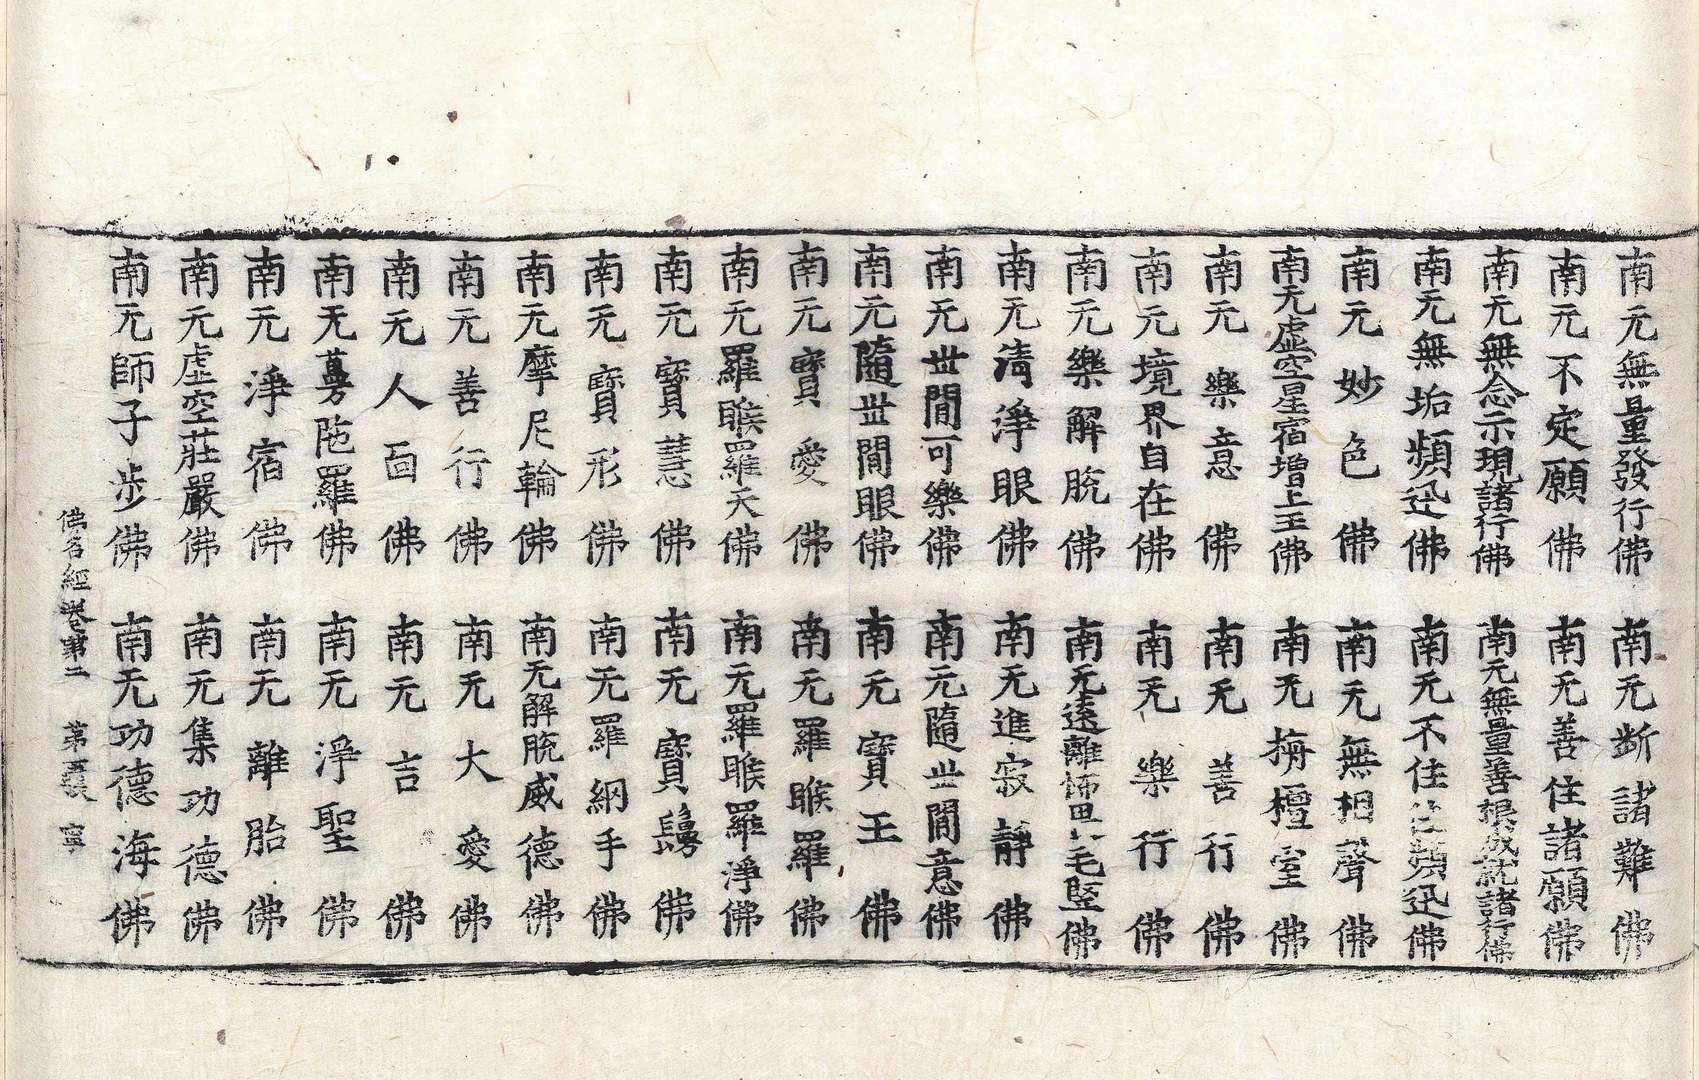 南无無量發行佛　南无断諸難佛
南无不定願佛　南无善住諸願佛
南无無念示現諸行佛　南无無量善根成就諸行佛
南无無垢頻迅佛　南无不住頻迅佛
南无妙色佛　南无無相聲佛
南无虚空星宿增上王佛　南无栴檀室佛
南无樂意佛　南无善行佛
南无境界自在佛　南无樂行佛
南无樂解脫佛　南无遠離怖畏毛竪佛
南无清淨眼佛　南无進寂靜佛
南无世間可樂佛　南无隨世間意佛
南无隨世間眼佛　南无寶王佛
南无寶愛佛　南无羅睺羅佛
南无羅睺羅天佛　南无羅睺羅淨佛
南无寶慧佛　南无寶佛
南无寶形佛　南无羅網手佛
南无摩尼輪佛　南无解脫威德佛
南无善行佛　南无大愛佛
南无人面佛　南无言佛
南无蔓陁羅佛　南无淨聖佛
南无淨宿佛　南无離胎佛
南无虚空莊嚴佛　南无集功德佛
南无師子步佛　南无功德海佛
佛名經卷第二　第張　寧